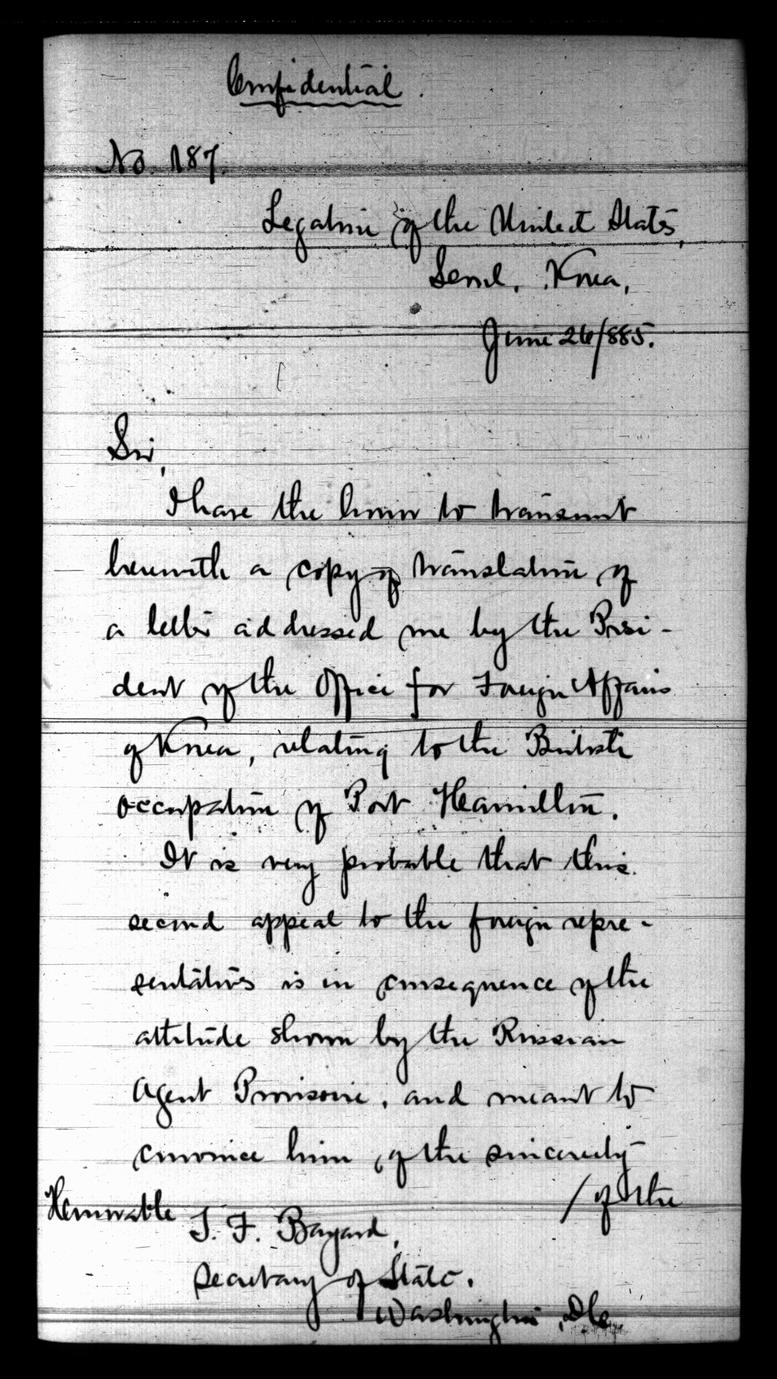 Confidential.
No. 187.
Legation of the United States,
Seoul, Korea,
June 26/885.
Sir,
I have the honor to transmit
herewith a copy of translation of
a letter addressed me by the Presi-
dent of the Office for Foreign Affairs
of Korea, relating to the British
occupation of Port Hamilton.
It is very probable that this
second appeal to the foreign repre-
sentatives is in consequence of the
attitude shown by the Russian
Agent Provisoire, and meant to
convince him, of the sincerity
/ of the
Honorable
T. F. Bayard,
Secretary of State.
Washington, D.C.